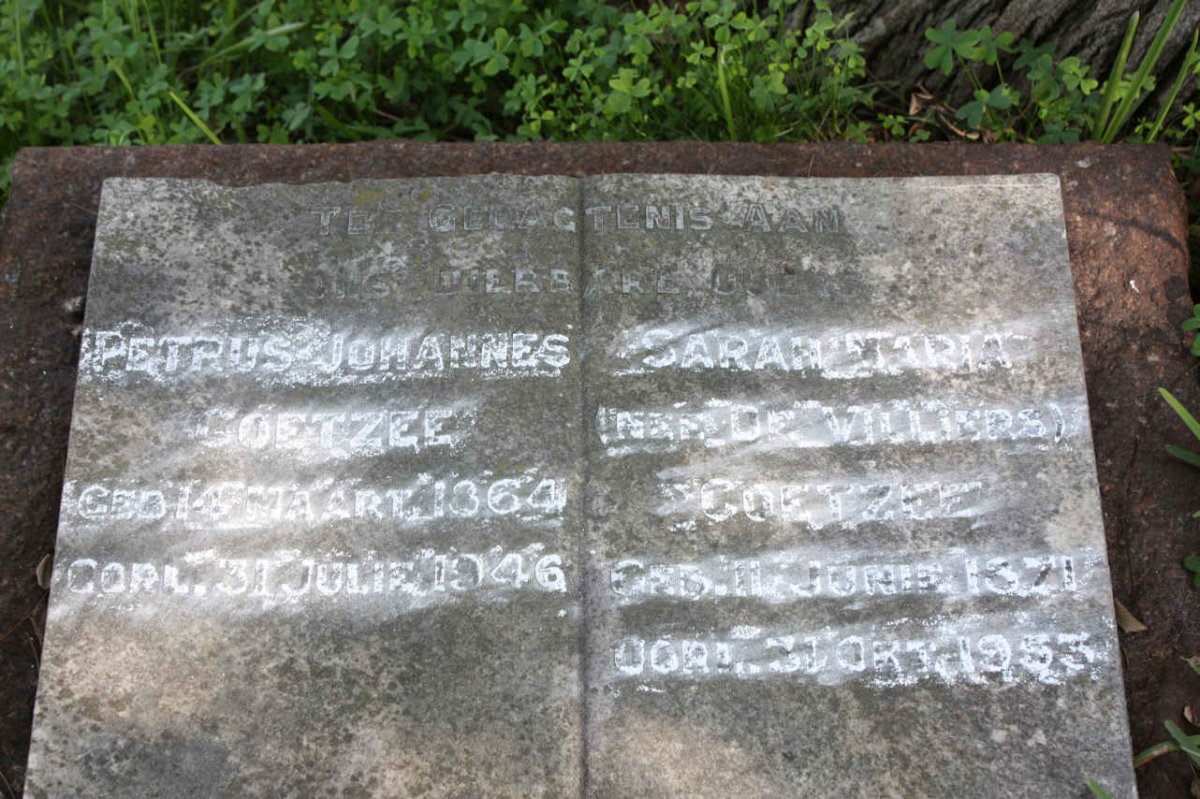 TER GEDAGTENIS AAN
ONS DIERBARE OUERS
PETRUS JOHANNES
COETZEE
GEB 14 MAART. 1864
OORL. 31 JULIE. 1946
SARAH MARIA
(NEE DE VILLIERS)
COETZEE
GEB. 11 JUNIE 1871
OORL. 31 OKT. 1953